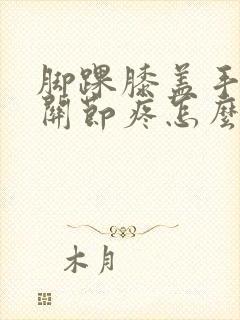 脚踝膝盖手
關節疼怎麼
木月